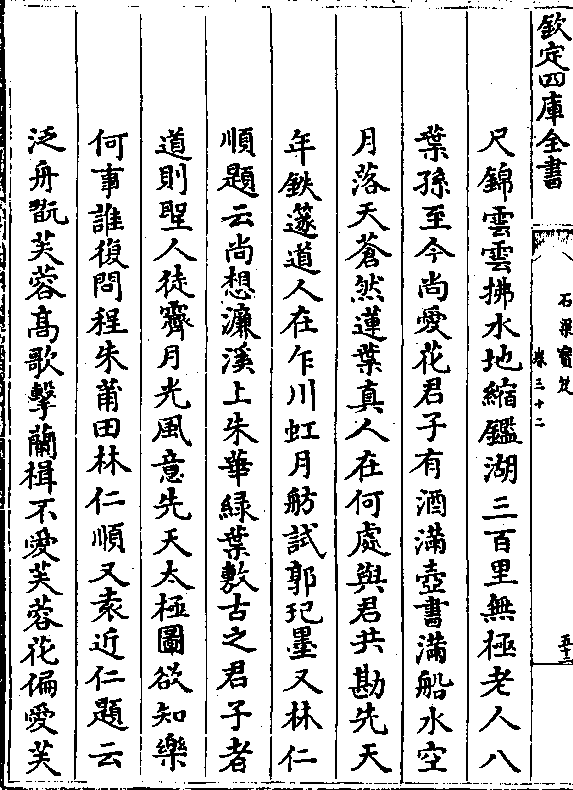 欽定四庫全書
石渠寶笈
卷三十二
五十二
尺錦雲雲拂水地縮鑑湖三百里無極老人八
葉孫至今尚愛花君子有酒滿壺書滿船水空
月落天蒼然蓮葉真人在何處與君共勘先天
年鉄篴道人在乍川虹月舫試郭玘墨又林仁
順題云尚想濂溪上朱華綠葉敷古之君子者
道則聖人徒霽月光風意先天太極圖欲知樂
何事誰復問程朱莆田林仁順又袁近仁題云
泛舟翫芙蓉高歌擊蘭楫不愛芙蓉花偏愛芙